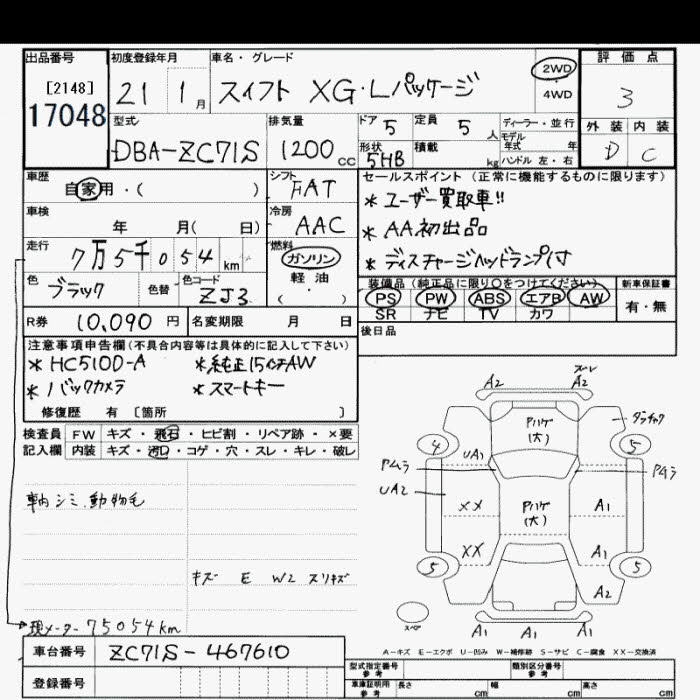 出品番号 初度登録年月 車名・グレード 評価点
[2148]
17048
21 1月 スイフト XG・Lパッケージ
2WD
4WD
3
型式 排気量 ドア 定員 ディーラー・並行
DBA-ZC71S 1200cc 5 5人
モデル年式 年
外装 内装
D C
形状 積載 kg ハンドル 左・右
5HB
車歴 シフト セールスポイント (正常に機能するものに限ります)
自家用・( ) FAT
*ユーザー買取車!!
車検 冷房
年 月( 日) AAC
*AA初出品
走行 燃料
7万5千054km ガソリン
*ディスチャージヘッドランプ付
軽油
( ・ )
色 色替 色コード
ブラック ZJ3
装備品(純正品に限り○をつけてください) 新車保証書
PS PW ABS エアB AW 有・無
SR ナビ TV カワ
R券 10,090円 名変期限 月 日
後日品
注意事項申告欄(不具合内容等は具体的に記入して下さい)
*HC510D-A *純正15インチAW
*バックカメラ *スマートキー
修復歴 有 [箇所 ]
検査員 FW キズ・飛石・ヒビ割・リペア跡・×要
記入欄 内装 キズ・汚れ・コゲ・穴・スレ・キレ・破レ
車内シミ.動物毛
キズ E W2 スリキズ
現メーター75054km
車台番号 ZC71S-467610
登録番号
スレ
A2 A2
Pハゲ
(大)
ダッチャク
4 5
UA1
Pムラ Pムラ
UA2
XX Pハゲ A1
(大)
XX A1
5 5
A2
スペア
A1 A1 A1
A-キズ E-エクボ U-凹み W-補修跡 S-サビ C-腐食 XX-交換済
型式指定番号 参考 類別区分番号 参考
車庫証明用 参考 長さ cm 幅 cm 高さ cm